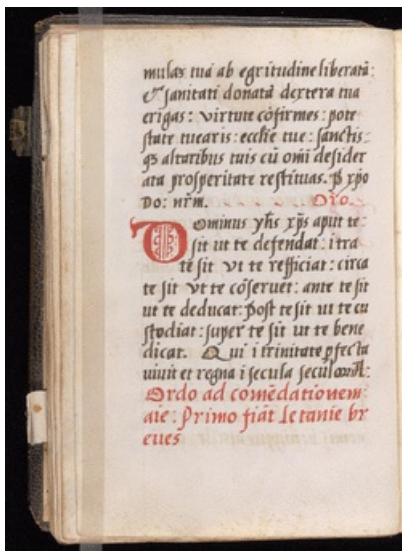 mulas tuā ab egritudine liberatā:
& sanitati donatā dextera tua
erigas: virtute cōfirmes: pote
state tuearis: ecclie tue: sanctis-
qȝ altaribus tuis cū omī desider
ata prosperitate restituas. ꝑ xpo
Do: nrm. Oro.
Dominus yhs xps aput te
sit ut te defendat: ītra
te sit vt te refficiat: circa
te sit vt te cōseruet: ante te sit
ut te deducat: post te sit ut te cu
stodiat: super te sit ut te bene
dicat. Qui ī trinitate ꝑfecta
uiuit et regna ī secula seculorū:
Ordo ad comēdationem
aīe: Primo fiāt letanie br
eues